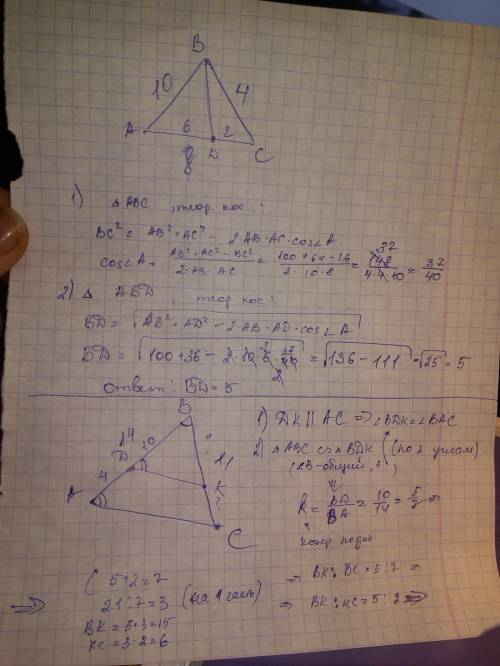 B
10
4
A
6
2
D
C
8
1) △ABC, теор. кос.:
BC² = AB² + AC² - 2·AB·AC·cos∠A
cos∠A = (AB² + AC² - BC²)/(2·AB·AC) = (100+64-16)/(2·10·8) = 148/(4·4·10) = 37/40
2) △ ABD, теор кос:
BD = √(AB² + AD² - 2·AB·AD·cos∠A)
BD = √(100+36 - 2·10·6·37/40) = √(136-111) = √25 = 5
Ответ: BD = 5
B
14
10
?
D
21
4
K
A
?
C
1) DK || AC ⇒ ∠BDK = ∠BAC
2) △ABC ∽ △BDK (по 2 углам)
(∠B-общий, ↑)
= 10/14 = 5/7 ⇒
коэф. подоб.
⇒ BK : BC = 5:7 ⇒
⇒ BK : KC = 5:2 ⇒
⇒ ( 5+2=7
21:7=3 (на 1 часть)
BK = 5·3=15
KC = 3·2=6